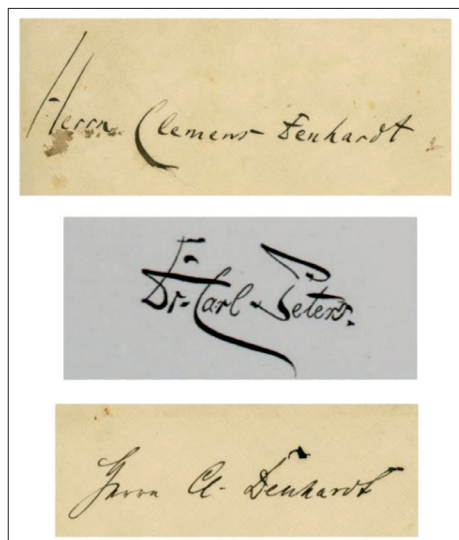 Herrn Clemens Denhardt
Dr. Carl Peters.
Herrn Cl. Denhardt